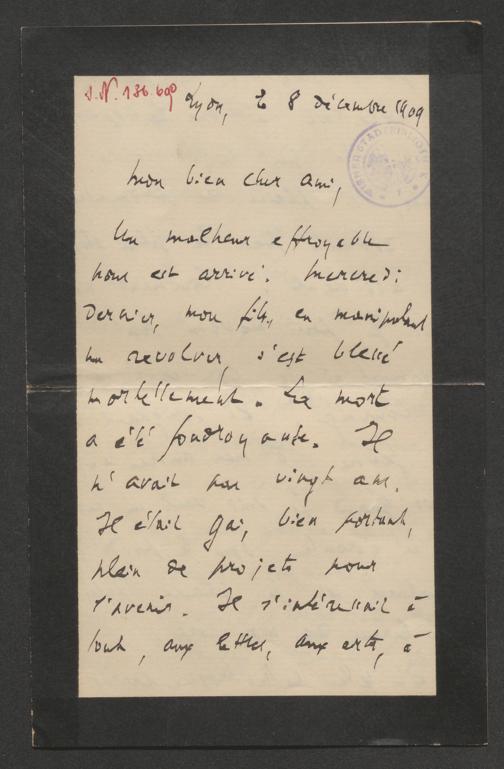 J. N. 136.690
Lyon, le 8 décembre 1909
Mon bien cher ami,
Un malheur effroyable
nous est arrivé. Mercredi
dernier, mon fils, en manipulant
un revolver, s'est blessé
mortellement. La mort
a été foudroyante. Il
n'avait pas vingt ans.
Il était gai, bien portant,
plein de projets pour
l'avenir. Il s'intéressait à
tout, aux lettres, aux arts, à